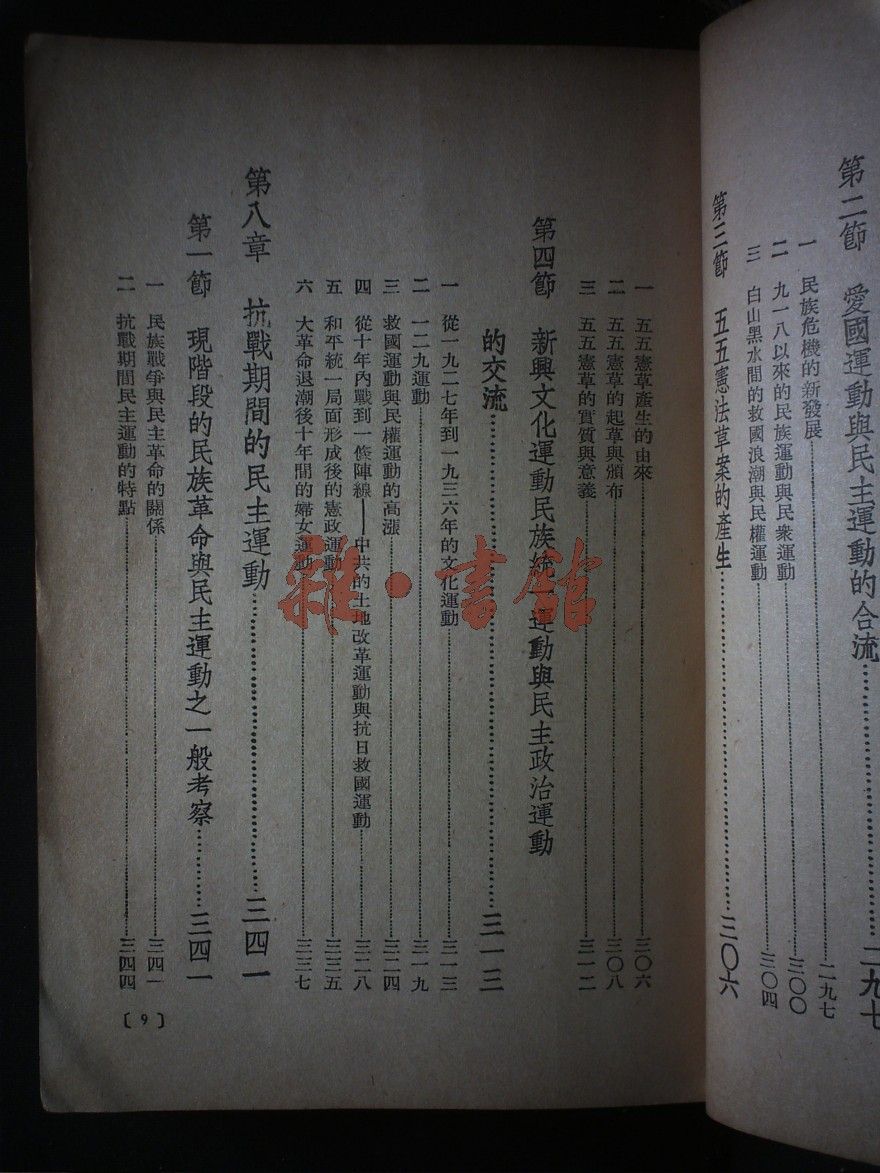 第二節　愛國運動與民主運動的合流……二九七
一　民族危機的新發展……二九七
二　九一八以來的民族運動與民衆運動……三〇〇
三　白山黑水間的救國浪潮與民權運動……三〇四
第三節　五五憲法草案的產生……三〇六
一　五五憲草產生的由來……三〇六
二　五五憲草的起草與頒布……三〇八
三　五五憲草的實質與意義……三一二
第四節　新興文化運動民族統一運動與民主政治運動
的交流……三一三
一　從一九二七年到一九三六年的文化運動……三一三
二　一二九運動……三一九
三　救國運動與民權運動的高漲……三二四
四　從十年內戰到一條陣線——中共的土地改革運動與抗日救國運動……三二八
五　和平統一局面形成後的憲政運動……三三五
六　大革命退潮後十年間的婦女運動……三三七
第八章　抗戰期間的民主運動……三四一
第一節　現階段的民族革命與民主運動之一般考察……三四一
一　民族戰爭與民主革命的關係……三四一
二　抗戰期間民主運動的特點……三四四
〔9〕
雜·書館